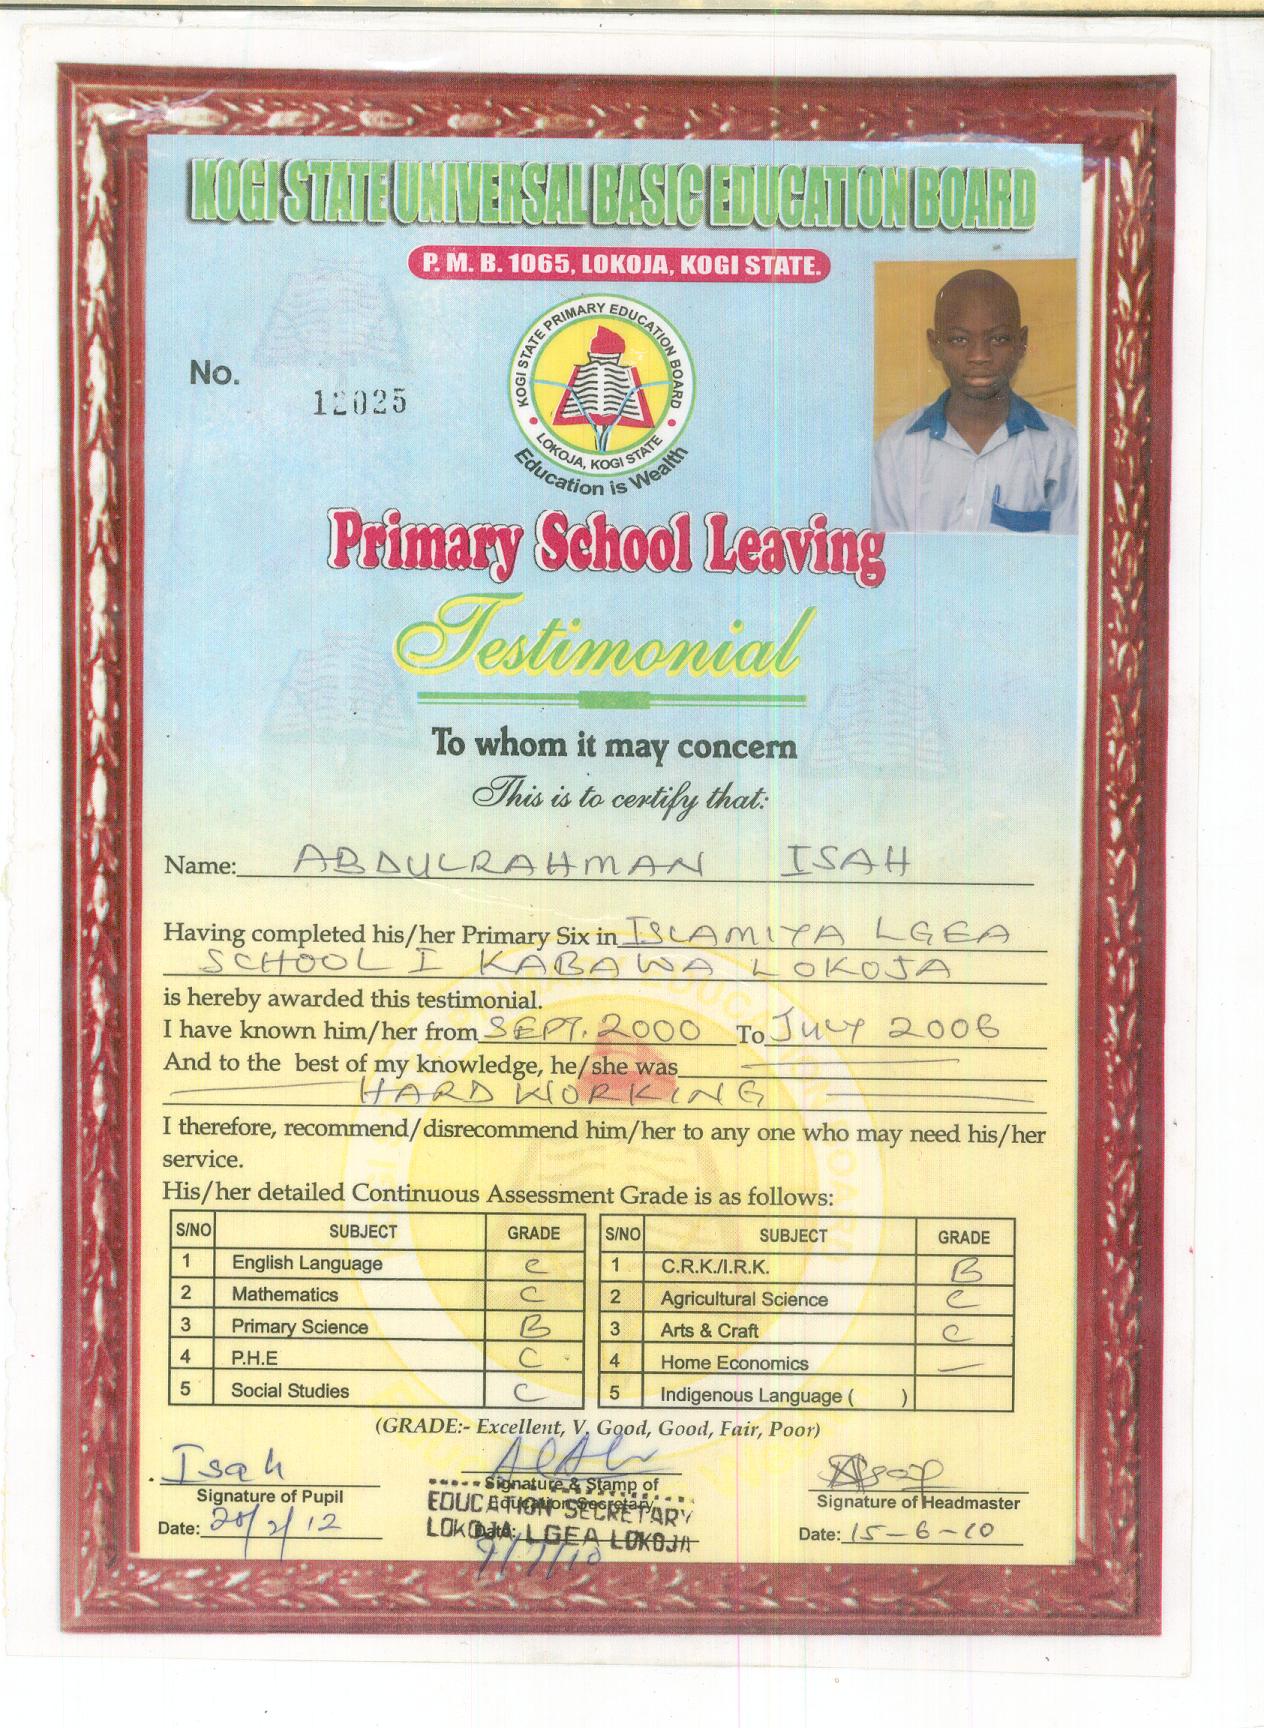 KOGI STATE UNIVERSAL BASIC EDUCATION BOARD
P. M. B. 1065, LOKOJA, KOGI STATE.
No.
12025
KOGI STATE PRIMARY EDUCATION BOARD
LOKOJA, KOGI STATE
Education is Wealth
Primary School Leaving
Testimonial
To whom it may concern
This is to certify that:
Name: ABDULRAHMAN ISAH
Having completed his/her Primary Six in ISLAMIYA LGEA
SCHOOL I KABAWA LOKOJA
is hereby awarded this testimonial.
I have known him/her from SEPT. 2000 To JULY 2006
And to the best of my knowledge, he/she was
HARD WORKING
I therefore, recommend/disrecommend him/her to any one who may need his/her
service.
His/her detailed Continuous Assessment Grade is as follows:
S/NO SUBJECT GRADE S/NO SUBJECT GRADE
1 English Language C 1 C.R.K./I.R.K. B
2 Mathematics C 2 Agricultural Science C
3 Primary Science B 3 Arts & Craft C
4 P.H.E C 4 Home Economics —
5 Social Studies C 5 Indigenous Language ( )
(GRADE:- Excellent, V. Good, Good, Fair, Poor)
Isah
Signature of Pupil Signature & Stamp of Education Secretary Signature of Headmaster
EDUCATION SECRETARY
LOKOJA LGEA LOKOJA
Date: 20/2/12 Date: 9/7/10 Date: 15-6-10